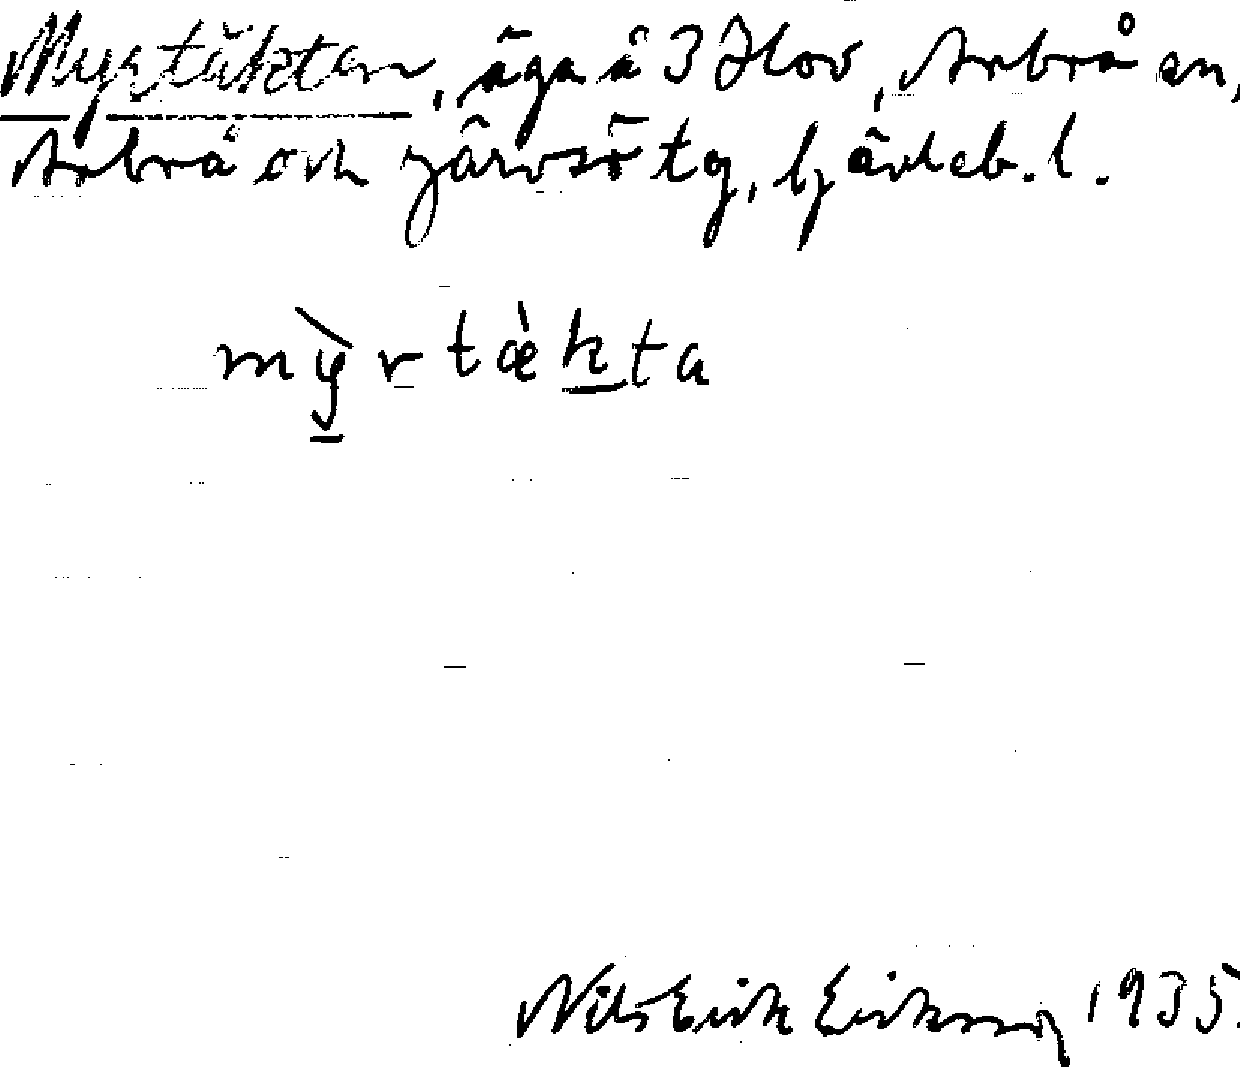 Myrtäkten, äga å 3 Flov, Arbrå sn,
Arbrå och Järvsö tg, Gävleb. l.
mỳrtæ̀kta
Nils Erik Eriksson 1935.